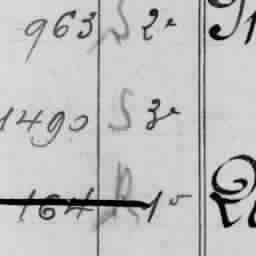 963 S 2^e
1490 S 3^e
164 R 1^o